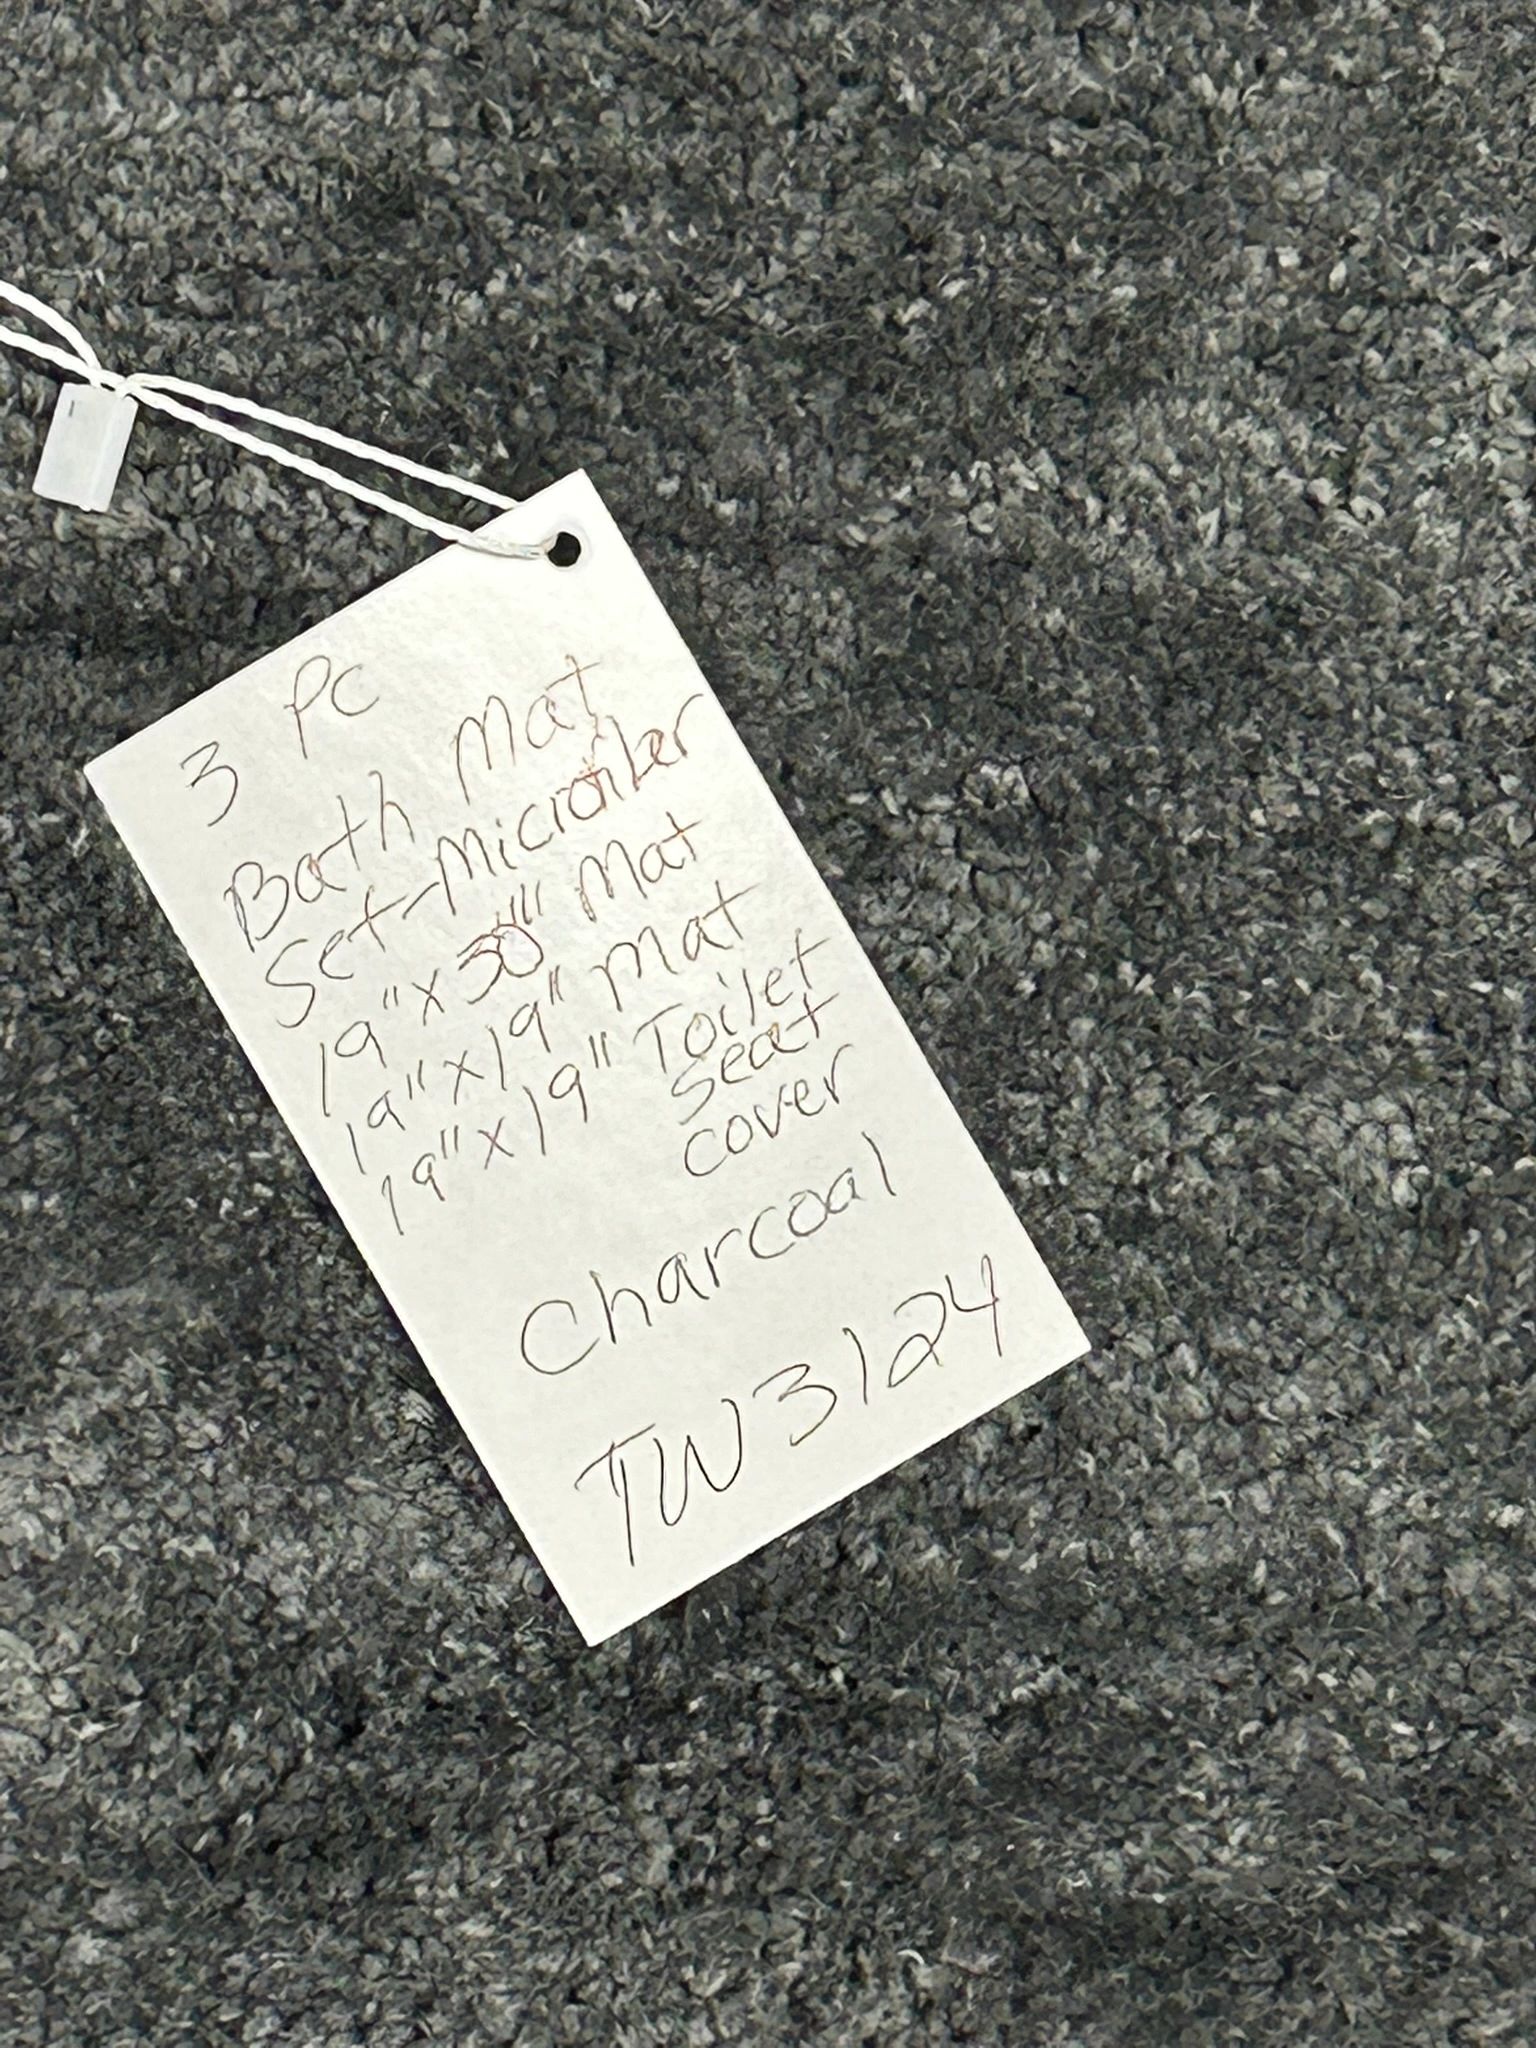 3 Pc
Bath Mat
Set-Microfiber
19" x 30" Mat
19" x 19" Mat
19" x 19" Toilet
Seat
cover
Charcoal
TW3124